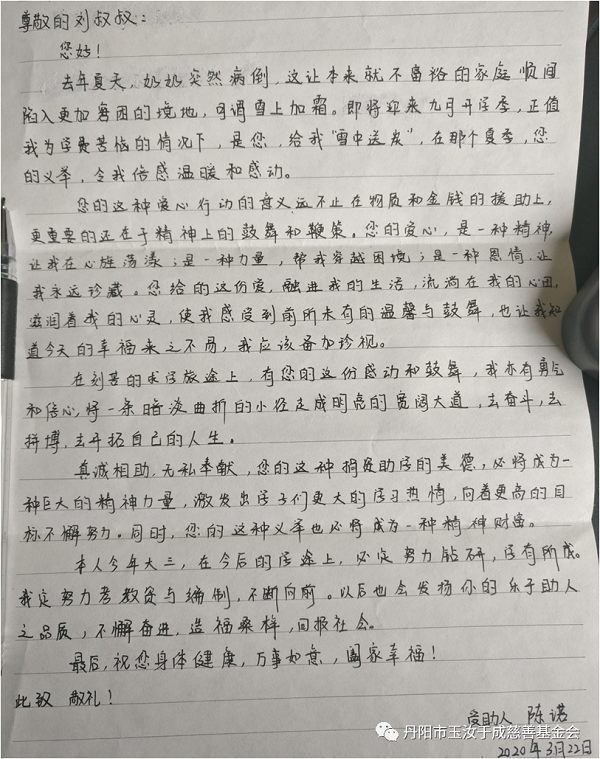 尊敬的刘叔叔：
您好！
去年夏天，奶奶突然病倒，这让本来就不富裕的家庭顺间
陷入更加窘困的境地，可谓雪上加霜。即将迎来九月开学季，正值
我为学费苦恼的情况下，是您，给我“雪中送炭”，在那个夏季，您
的义举，令我倍感温暖和感动。
您的这种爱心行动的意义远不止在物质和金钱的援助上，
更重要的还在于精神上的鼓舞和鞭策。您的爱心，是一种精神，
让我在心旌荡漾；是一种力量，帮我穿越困境；是一种恩情，让
我永远珍藏。您给的这份爱，融进我的生活，流淌在我的心田，
滋润着我的心灵，使我感受到前所未有的温馨与鼓舞，也让我知
道今天的幸福来之不易，我应该备加珍视。
在刻苦的求学旅途上，有您的这份感动和鼓舞，我亦有勇气
和信心，将一条暗淡曲折的小径走成明亮的宽阔大道，去奋斗，去
拼搏，去开拓自己的人生。
真诚相助，无私奉献，您的这种捐资助学的美德，必将成为一
种巨大的精神力量，激发出学子们更大的学习热情，向着更高的目
标不懈努力。同时，您的这种义举也必将成为一种精神财富。
本人今年大三，在今后的学途上，必定努力钻研，学有所成。
我定努力考教资与编制，不断向前。以后也会发扬你的乐于助人
之品质，不懈奋进，造福桑梓，回报社会。
最后，祝您身体健康，万事如意，阖家幸福！
此致 敬礼！
受助人 陈诺
丹阳市玉汝于成慈善基金会
2020年3月22日